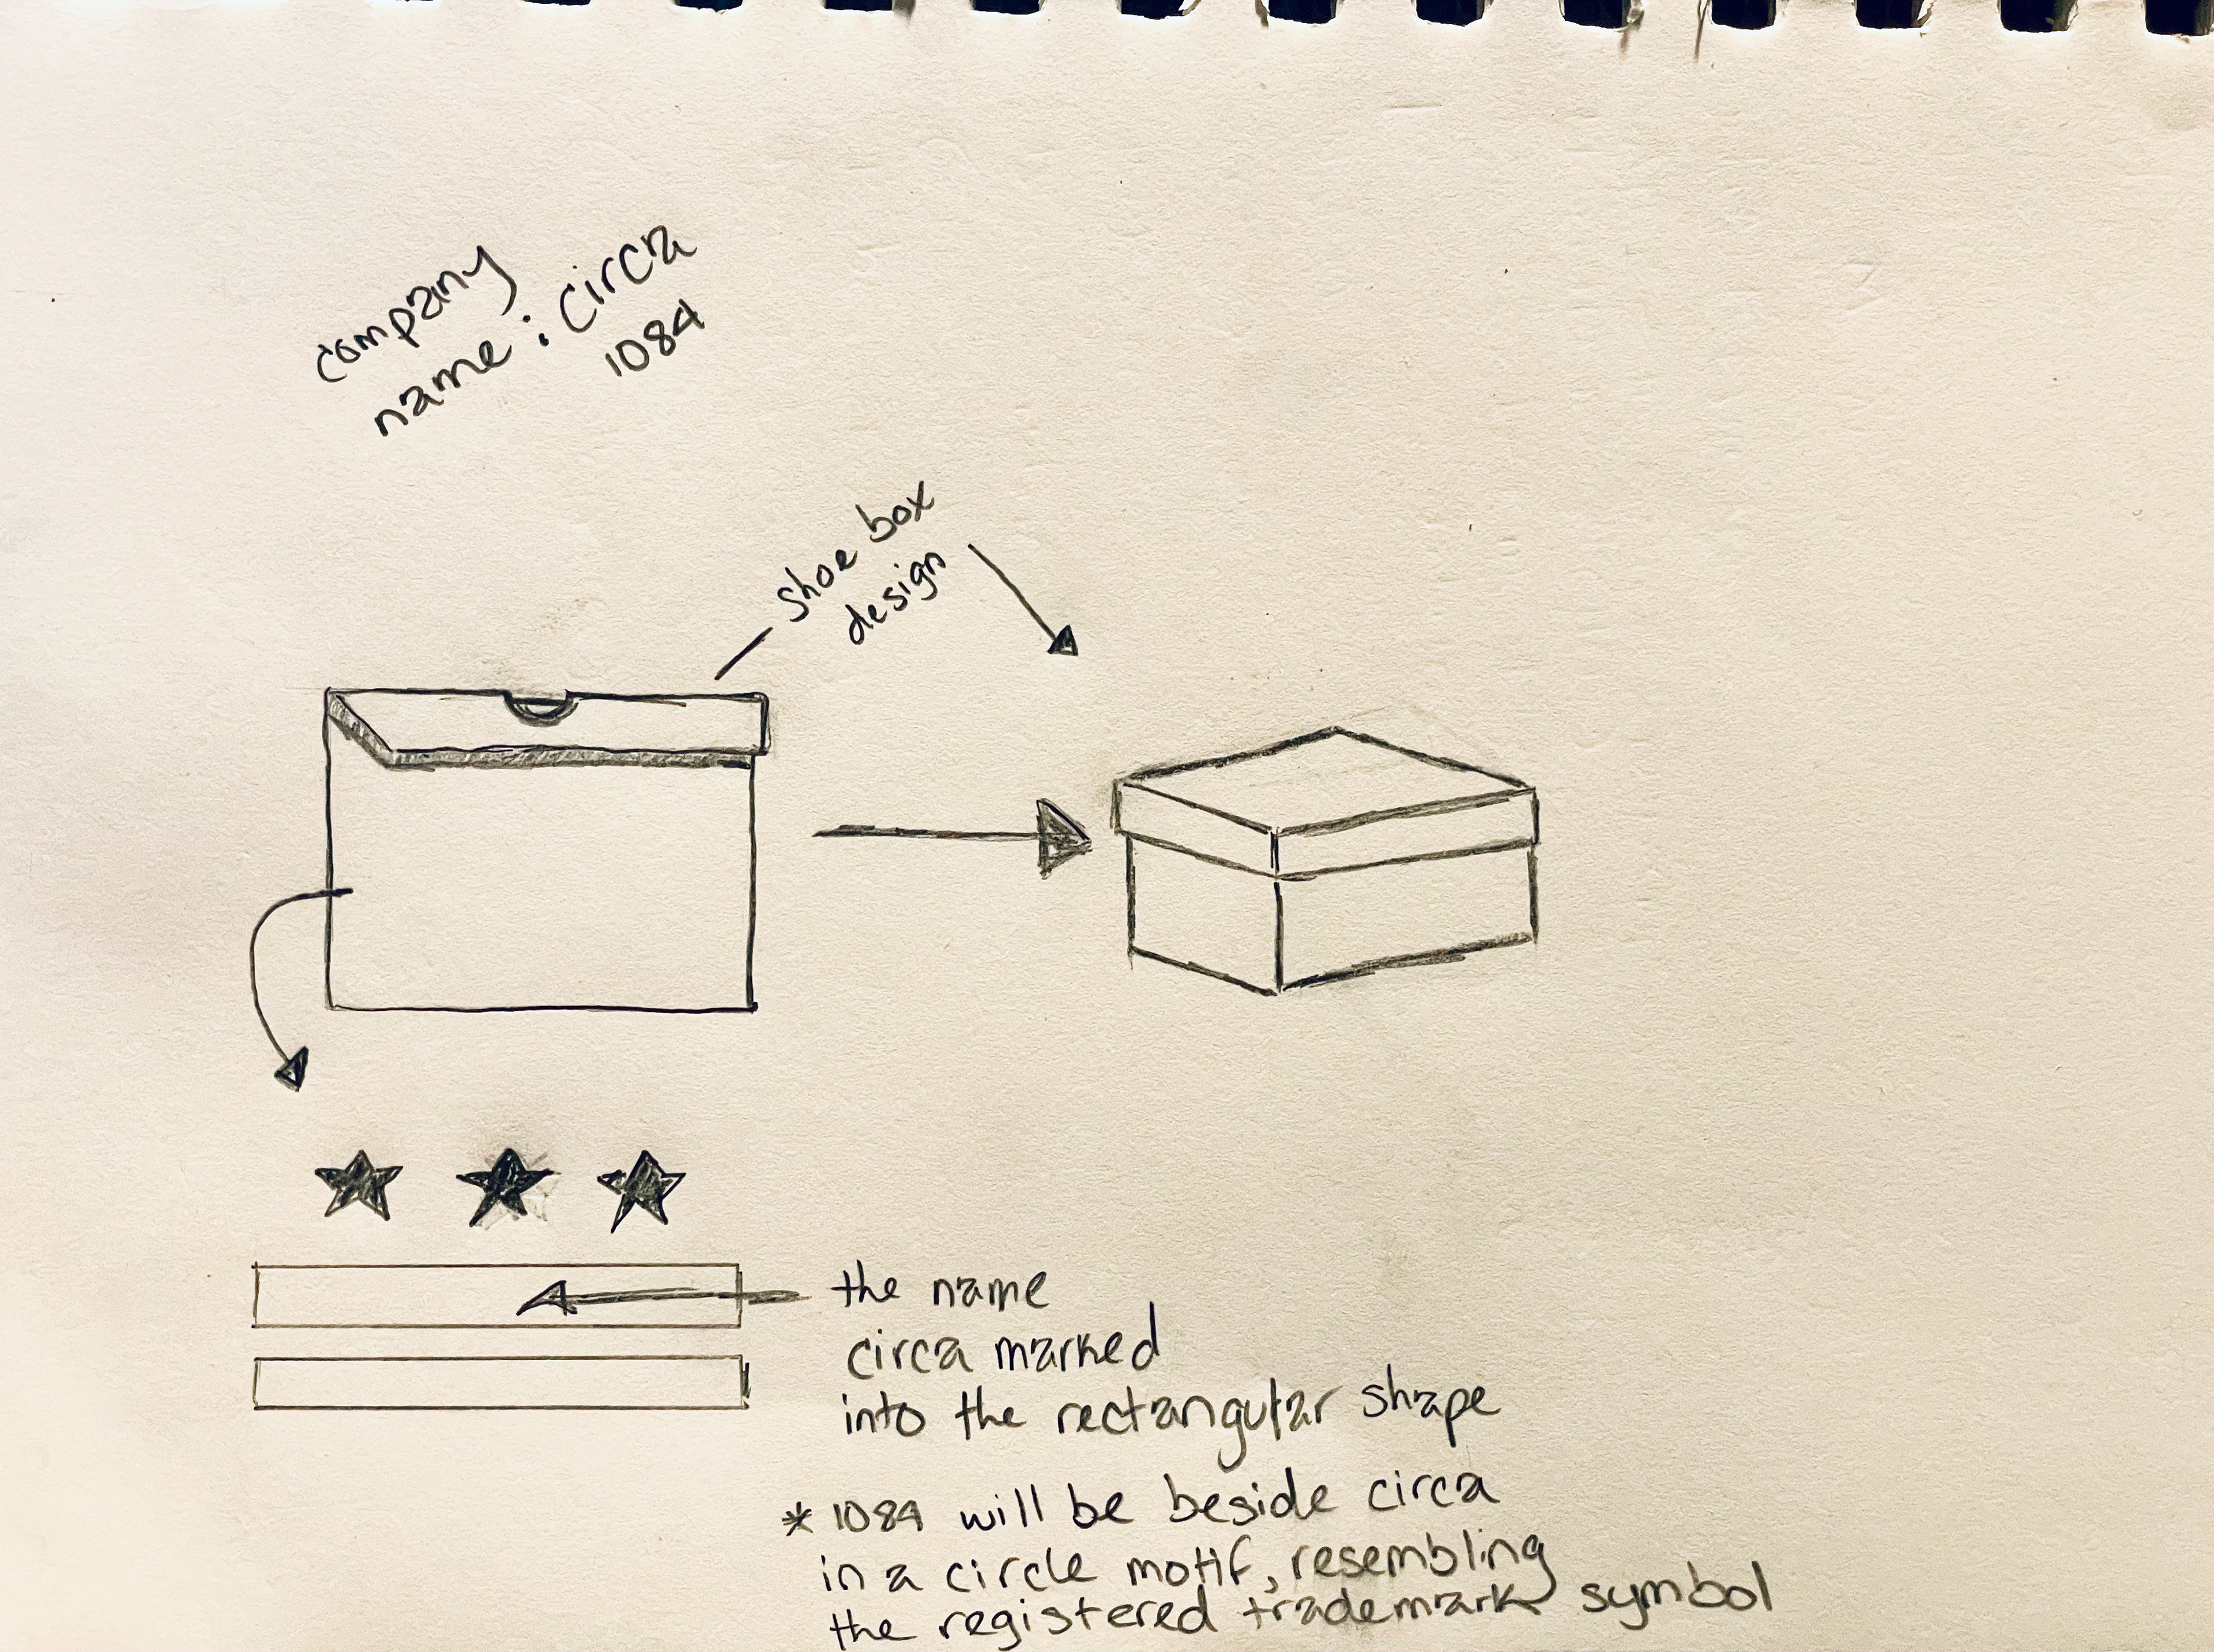 company
name : circa
1084
shoe box
design
the name
circa marked
into the rectangular shape
* 1084 will be beside circa
in a circle motif, resembling
the registered trademark symbol